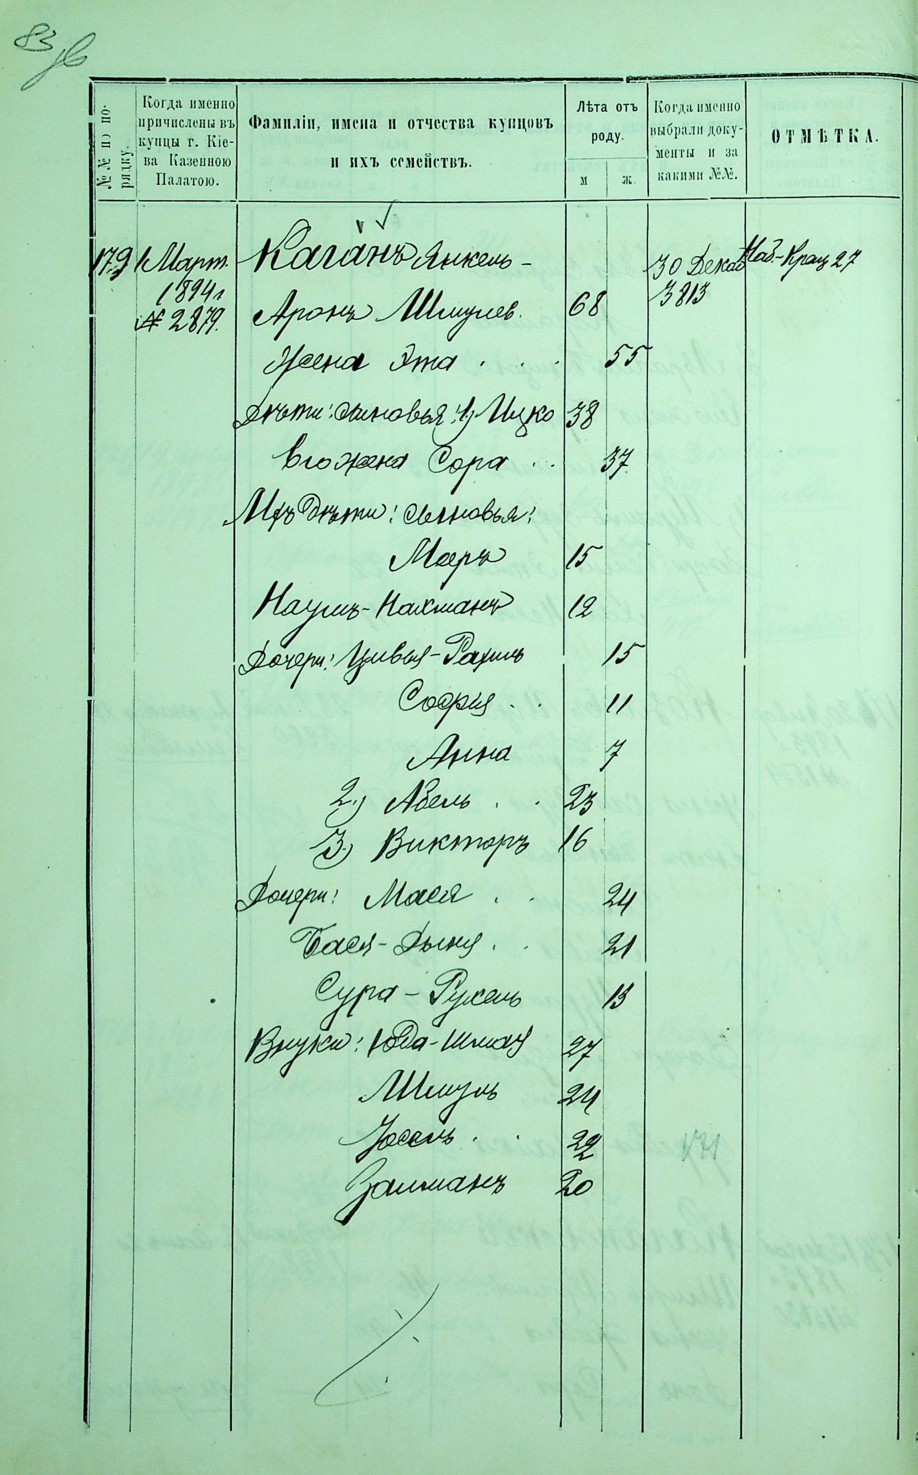 83
№№ по по-
рядку.
Когда именно
причислены въ
купцы г. Кіе-
ва Казенною
Палатою.
Фамиліи, имена и отчества купцовъ
и ихъ семействъ.
Лѣта отъ
роду.
м
ж.
Когда именно
выбрали доку-
менты и за
какими №№.
ОТМѢТКА.
179
1 Март.
1894 г
№ 2879.
Каганъ Янкель-
Аронъ Шмулев. 68
Жена Эта 55
Дѣти: сыновья: 1) Ицко 38
его жена Сора 37
Ихъ дѣти: сыновья:
Маръ 15
Наумъ-Нахманъ 12
Дочери: Цивья-Рахиль 15
София 11
Анна 7
2) Абель 23
3) Викторъ 16
Дочери: Мася 24
Бася-Дыня 21
Сура-Рухель 13
Внуки: Юда-Шлема 27
Шмуль 24
Іосель 22
Залманъ 20
30 Декаб
3813
Наб.-Крещ 27
131